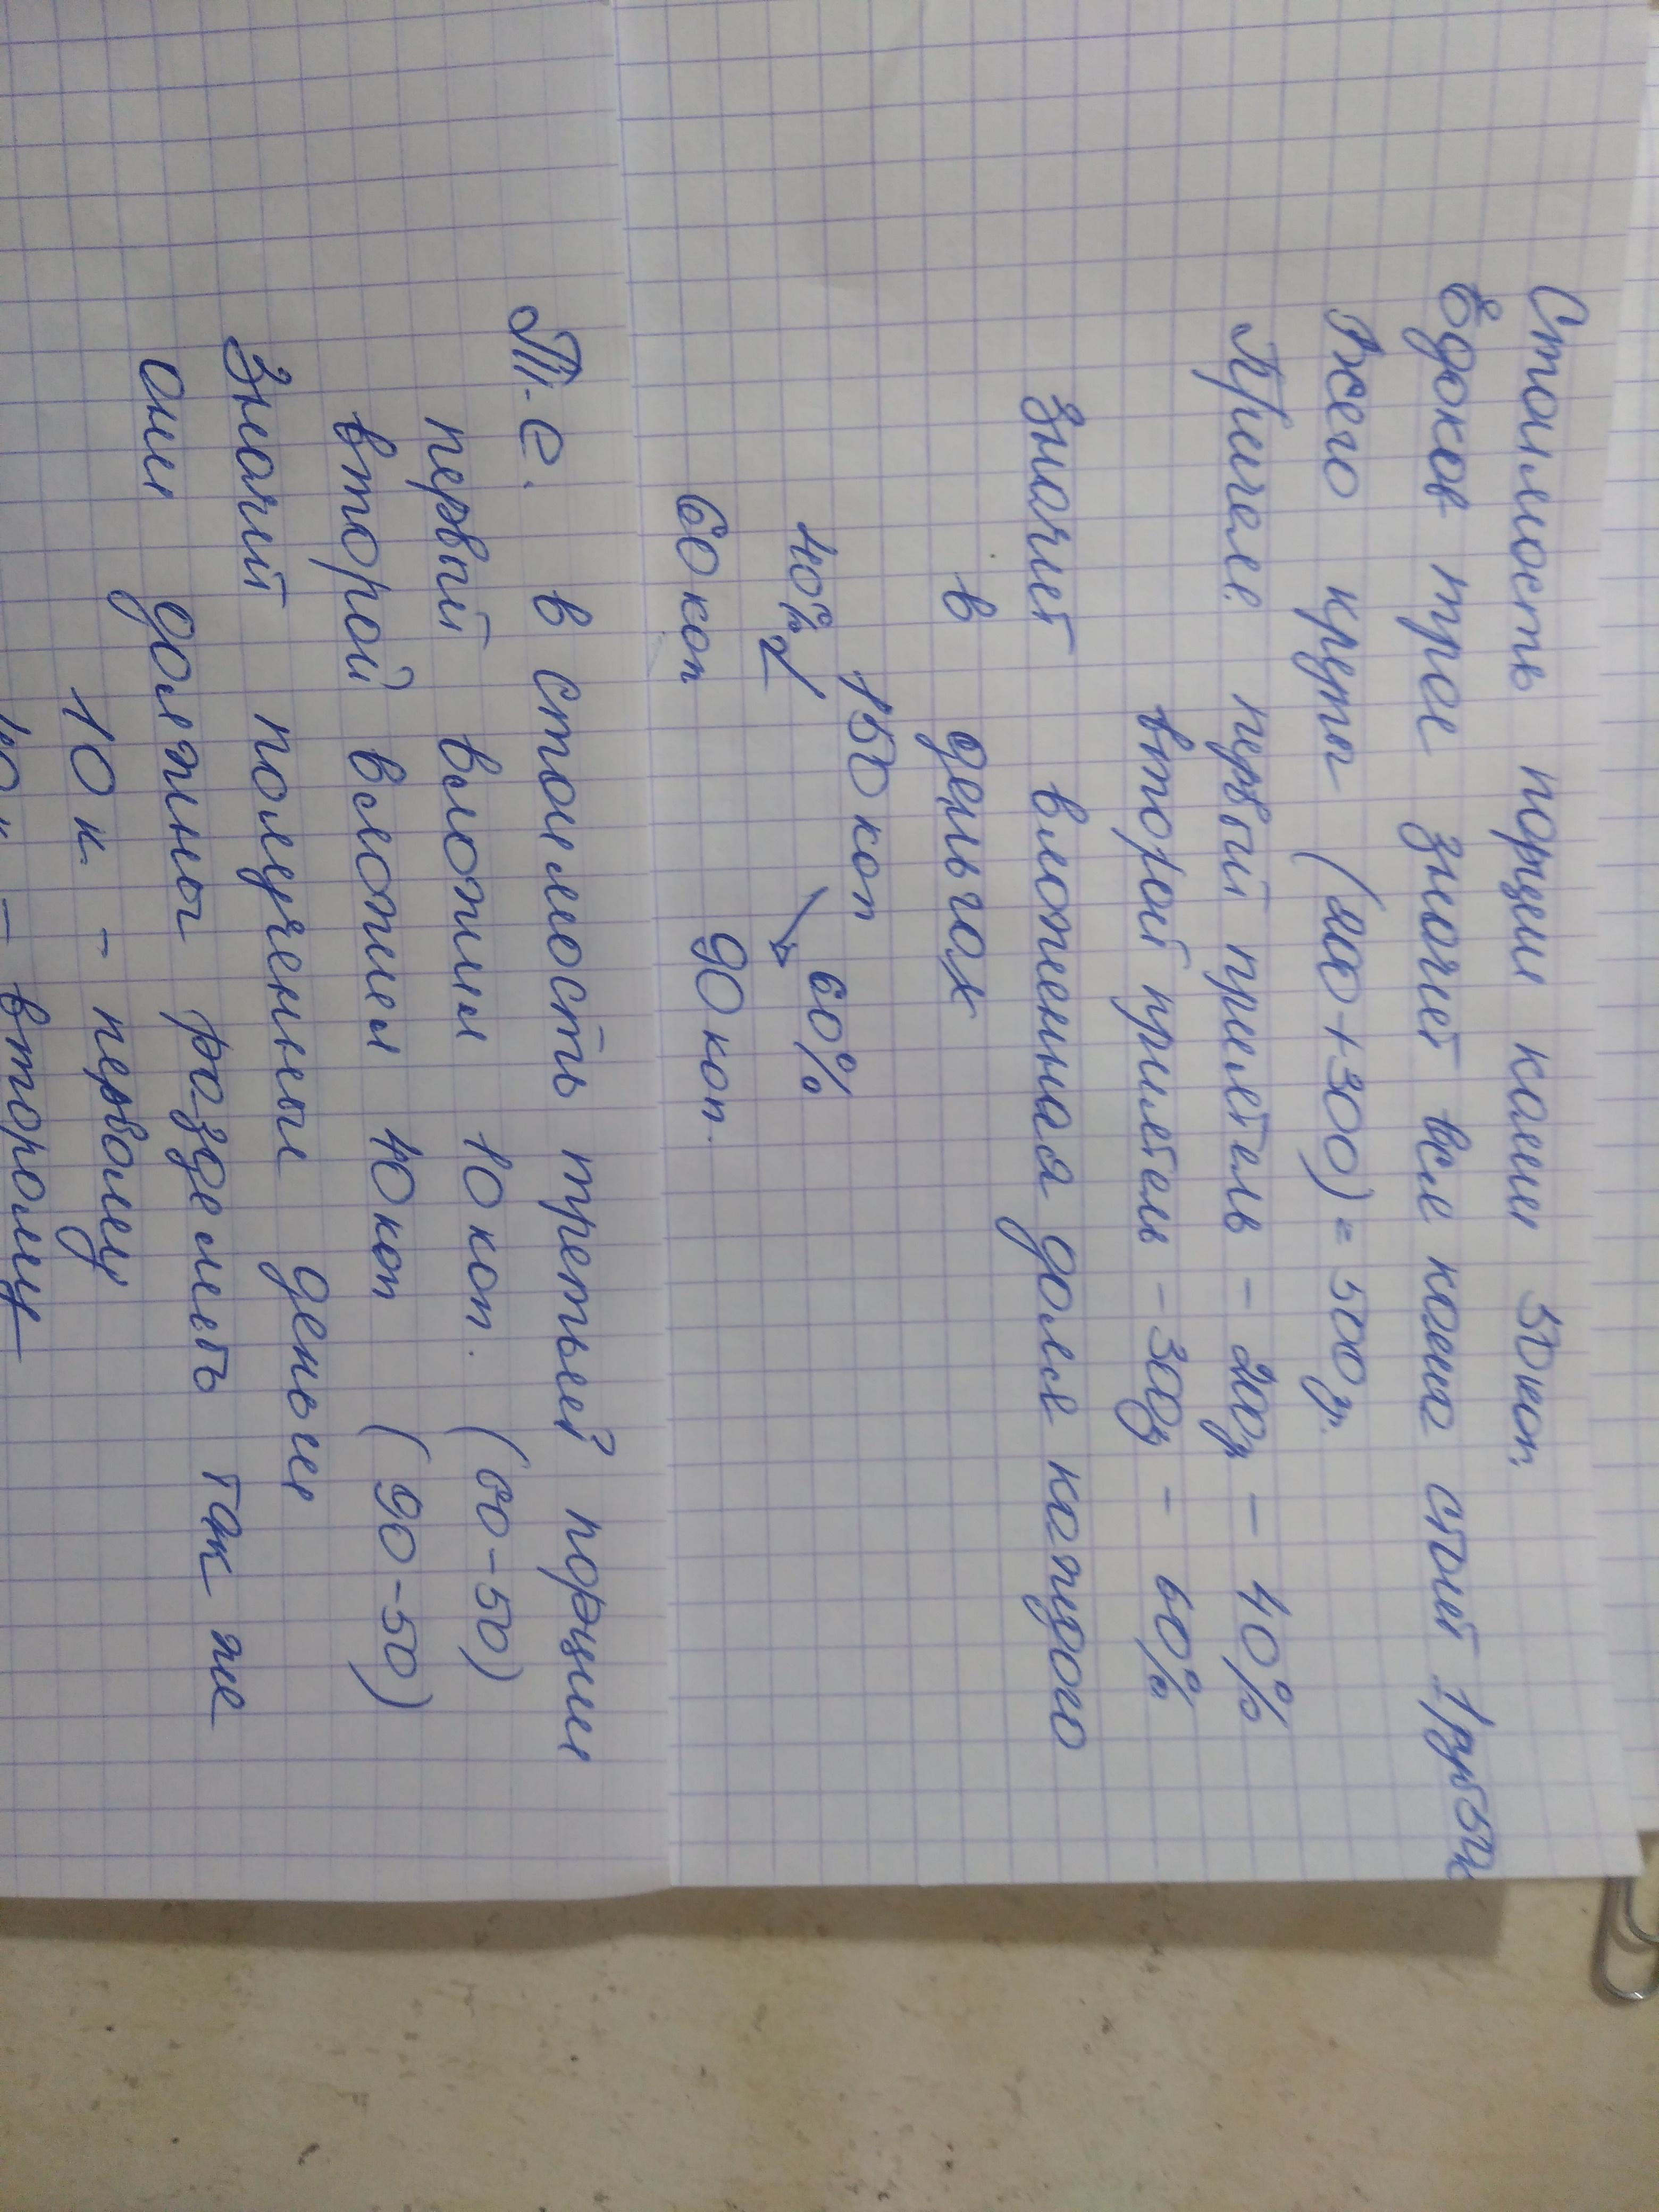 Стоимость порции каши 50 коп.
Едоков трое значет вся каша стоит 1 руб 50 к
Всего крупы (200 + 300) = 500 г.
Причем первый приятель – 200г – 40%
второй приятель – 300г – 60%
Значет вложенная доля каждого
в деньгах
150 коп
40% 60%
60 коп 90 коп.
Т.е. в стоимость третьей порции
первый вложил 10 коп. (60 - 50)
второй вложил 40 коп (90 - 50)
Значит полученные деньги
они должны разделить так же
10 к – первому
40 к – второму